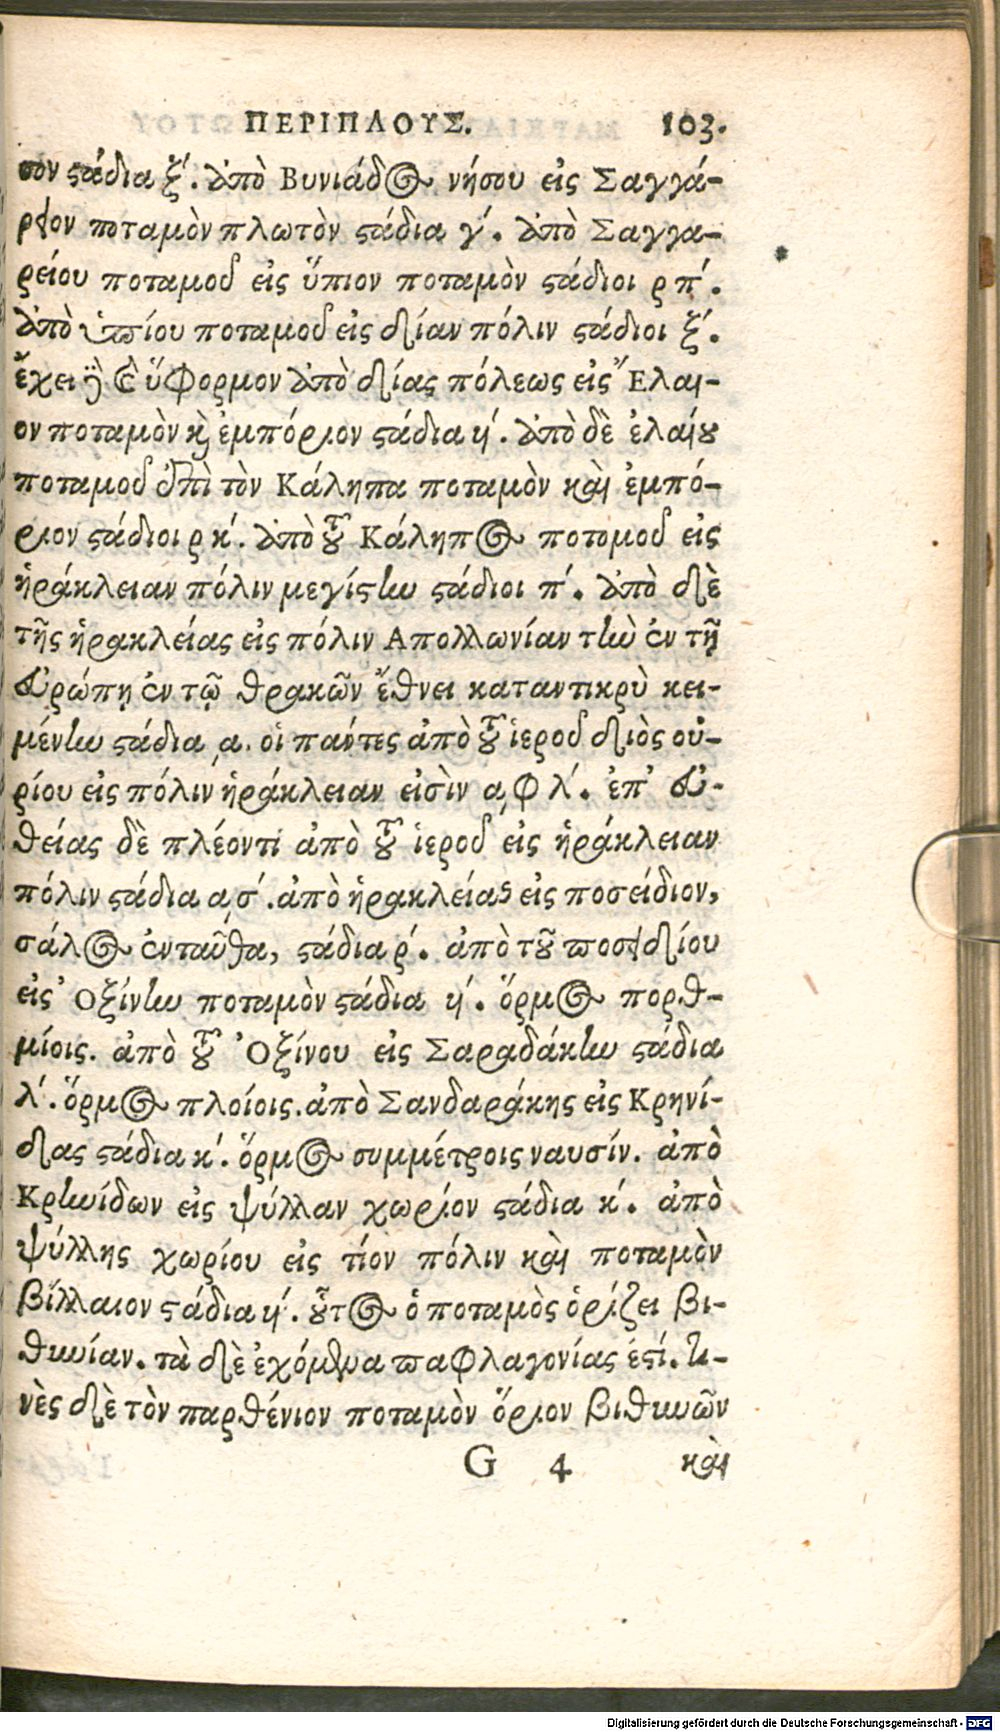 ΠΕΡΙΠΛΟΥΣ. 103.
σον στάδια ξ΄. ἀπὸ Βυνιάδος νήσου εἰς Σαγγά-
ρειον ποταμὸν πλωτὸν στάδια γ΄. ἀπὸ Σαγγα-
ρείου ποταμοῦ εἰς ὕπιον ποταμὸν στάδιοι ρπ΄.
ἀπὸ ὑπίου ποταμοῦ εἰς δίαν πόλιν στάδιοι ξ΄.
ἔχει καὶ ὕφορμον ἀπὸ δίας πόλεως εἰς Ἔλαι-
ον ποταμὸν καὶ ἐμπόριον στάδια η΄. ἀπὸ δὲ ἐλαίου
ποταμοῦ ἐπὶ τὸν Κάληπα ποταμὸν καὶ ἐμπό-
ριον στάδιοι ρκ΄. ἀπὸ τοῦ Κάληπος ποτομοῦ εἰς
ἡράκλειαν πόλιν μεγίστην στάδιοι π΄. ἀπὸ δὲ
τῆς ἡρακλείας εἰς πόλιν Απολλωνίαν τὴν ἐν τῇ
εὐρώπῃ ἐν τῷ θρακῶν ἔθνει καταντικρὺ κει-
μένην στάδια ͵α. οἱ πάντες ἀπὸ τοῦ ἱεροῦ διὸς οὐ-
ρίου εἰς πόλιν ἡράκλειαν εἰσὶν ͵αφλ΄. ἐπ' εὐ-
θείας δὲ πλέοντι ἀπὸ τοῦ ἱεροῦ εἰς ἡράκλειαν
πόλιν στάδια ͵ασ΄. ἀπὸ ἡρακλείας εἰς ποσείδιον,
σάλος ἐνταῦθα, στάδια ρ΄. ἀπὸ τοῦ ποσειδίου
εἰς Ὀξίνην ποταμὸν στάδια η΄. ὅρμος πορθ-
μίοις. ἀπὸ τοῦ Ὀξίνου εἰς Σαραδάκην στάδια
λ΄. ὅρμος πλοίοις. ἀπὸ Σανδαράκης εἰς Κρηνί-
δας στάδια κ΄. ὅρμος συμμέτροις ναυσίν. ἀπὸ
Κρηνίδων εἰς ψύλλαν χωρίον στάδια κ΄. ἀπὸ
ψύλλης χωρίου εἰς τίον πόλιν καὶ ποταμὸν
βίλλαιον στάδια η΄. οὗτος ὁ ποταμὸς ὁρίζει βι-
θυνίαν. τὰ δὲ ἐχόμενα παφλαγονίας ἐστί. τι-
νὲς δὲ τὸν παρθένιον ποταμὸν ὅριον βιθυνῶν
G 4 καὶ
Digitalisierung gefördert durch die Deutsche Forschungsgemeinschaft - DFG